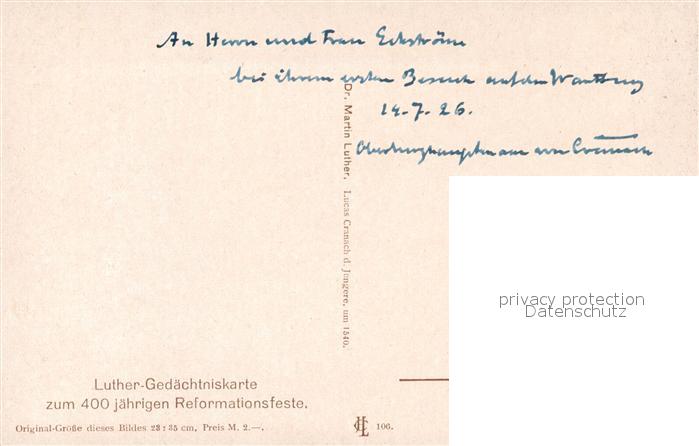 An Herrn und Frau Eckström
bei ihrem ersten Besuch auf der Wartburg
14.7.26.
Oberburghauptmann von Cranach
Dr. Martin Luther. Lucas Cranach d. Jüngere, um 1540.
privacy protection
Datenschutz
Luther-Gedächtniskarte
zum 400 jährigen Reformationsfeste.
Original-Größe dieses Bildes 28:35 cm, Preis M. 2.—.
106.